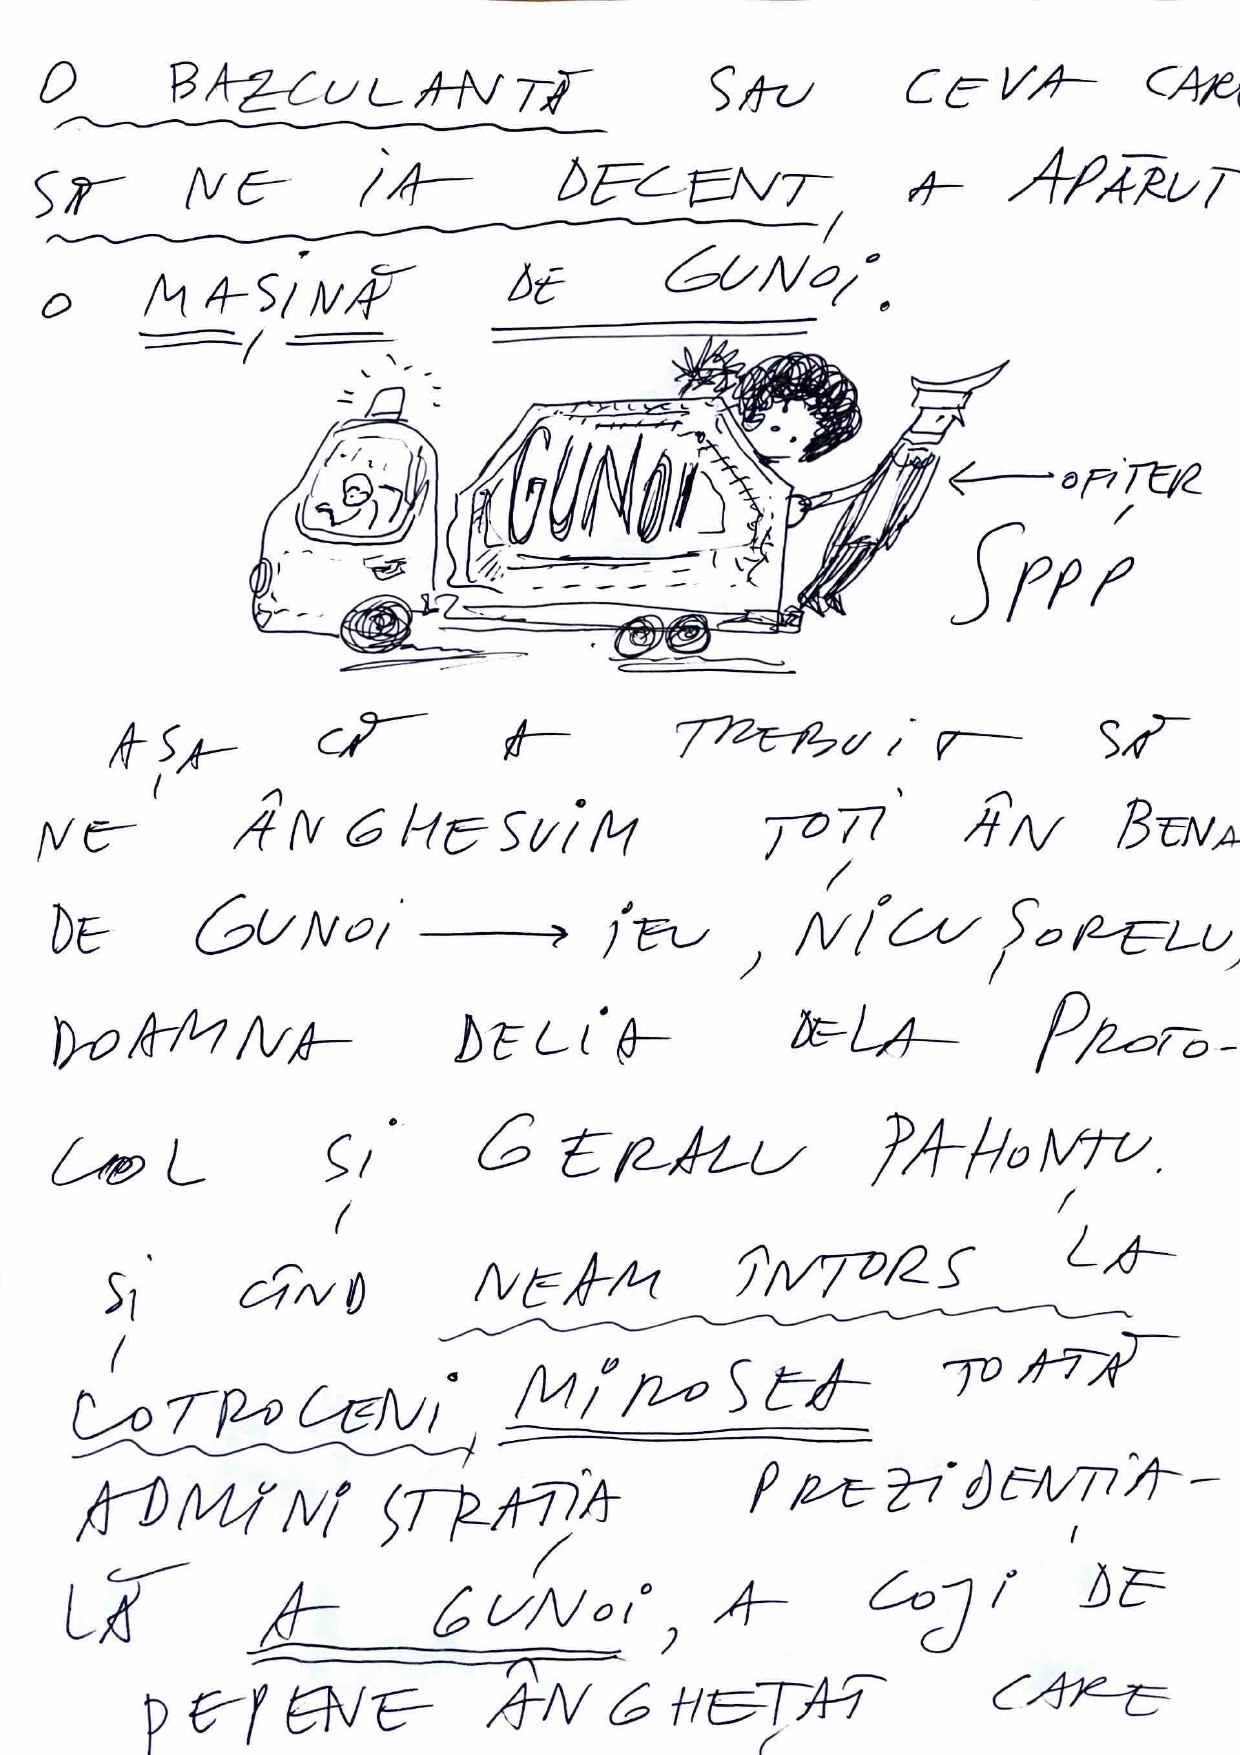 O BAZCULANTĂ SAU CEVA CARE
SĂ NE IA DECENT, A APĂRUT
O MAȘINĂ DE GUNOI.
GUNOI
OFIȚER
SPPP
AȘA CĂ A TREBUIT SĂ
NE ÂNGHESUIM TOȚI ÂN BENA
DE GUNOI → IEU, NICUȘORELU,
DOAMNA DELIA DELA PROTO-
COL ȘI GERALU PAHONȚU.
ȘI CÎND NEAM ÎNTORS LA
COTROCENI, MIROSEA TOATĂ
ADMINISTRAȚIA PREZIDENȚIA-
LĂ A GUNOI, A COJI DE
PEPENE ÂNGHEȚAT CARE